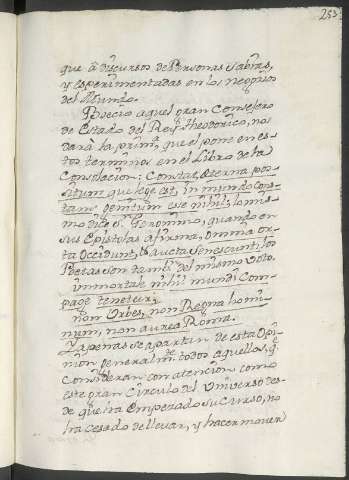 253
que â discursos de Personas sabias,
y esperimentadas en los negocios
del Mundo.
Boecio aquel gran Consejero
de Estado del Rey Theodorico, nos
dará la prima, que el pone en es-
tos terminos en el Libro de la
Consolacion: Constat, æterna pos-
situm que lege est, in mundo cons-
tans genitum esse nihil; lo mis-
mo dice Sn. Geronimo, quando en
sus Epistolas afirma, omnia or-
ta occidunt, & aucta senescunt; los
Poetas son tambn. del mismo voto.
immortale nihil mundi Com-
page tenetur;
non Urbes, non Regna homi-
num, non aurea Roma.
Y apenas se apartan de esta Opi-
nion generalmte. todos aquellos, qe.
consideran con atencion como
este gran Circulo del Universo des-
de que ha empezado su Curso, no
ha cesado de llevar, y hacer mover